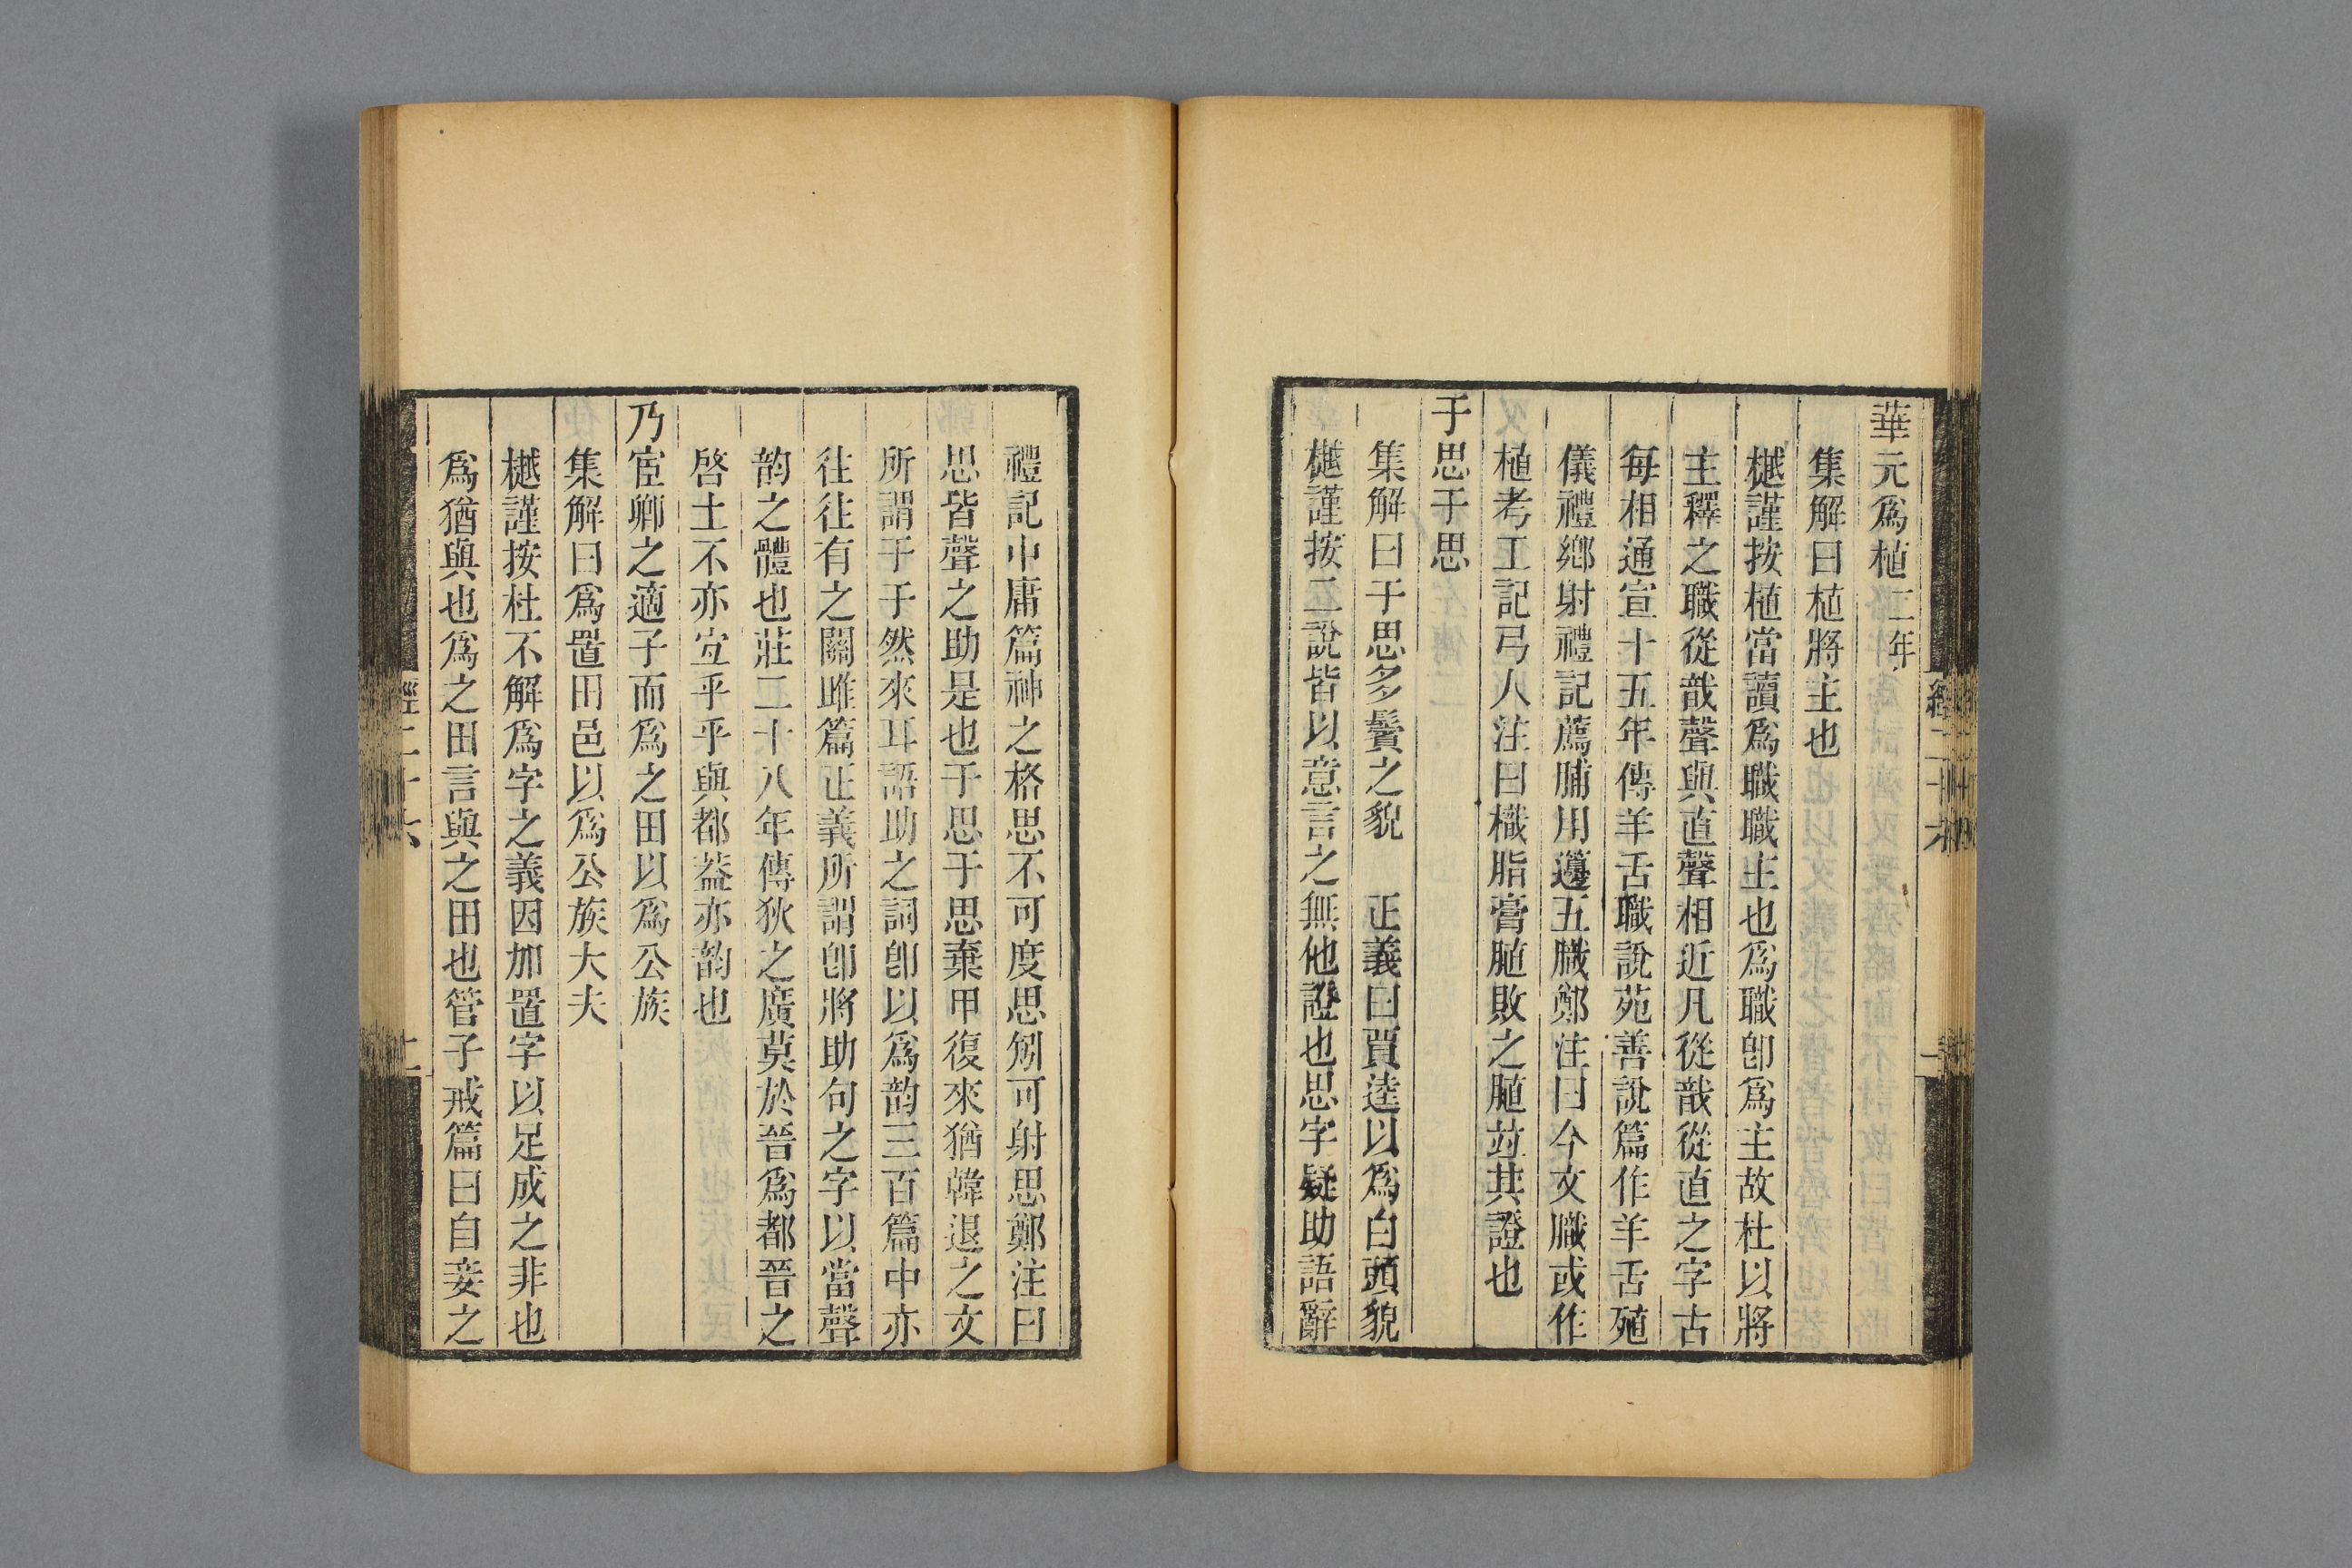 華元爲植二年
集解曰植將主也
樾謹按植當讀爲職職主也爲職卽爲主故杜以將
主釋之職從戠聲與直聲相近凡從戠從直之字古
每相通宣十五年傳羊舌職說苑善說篇作羊舌殖
儀禮鄉射禮記薦脯用籩五膱鄭注曰今文膱或作
植考工記弓人注曰樴脂膏䐈敗之䐈竝其證也
于思于思
集解曰于思多鬢之貌　正義曰賈逵以爲白頭貌
樾謹按二說皆以意言之無他證也思字疑助語辭
禮記中庸篇神之格思不可度思矧可射思鄭注曰
思皆聲之助是也于思于思棄甲復來猶韓退之文
所謂于于然來耳語助之詞卽以爲韵三百篇中亦
往往有之關雎篇正義所謂卽將助句之字以當聲
韵之體也莊二十八年傳狄之廣莫於晉爲都晉之
啓土不亦宜乎乎與都葢亦韵也
乃宦卿之適子而爲之田以爲公族
集解曰爲置田邑以爲公族大夫
樾謹按杜不解爲字之義因加置字以足成之非也
爲猶與也爲之田言與之田也管子戒篇曰自妾之
經二十六